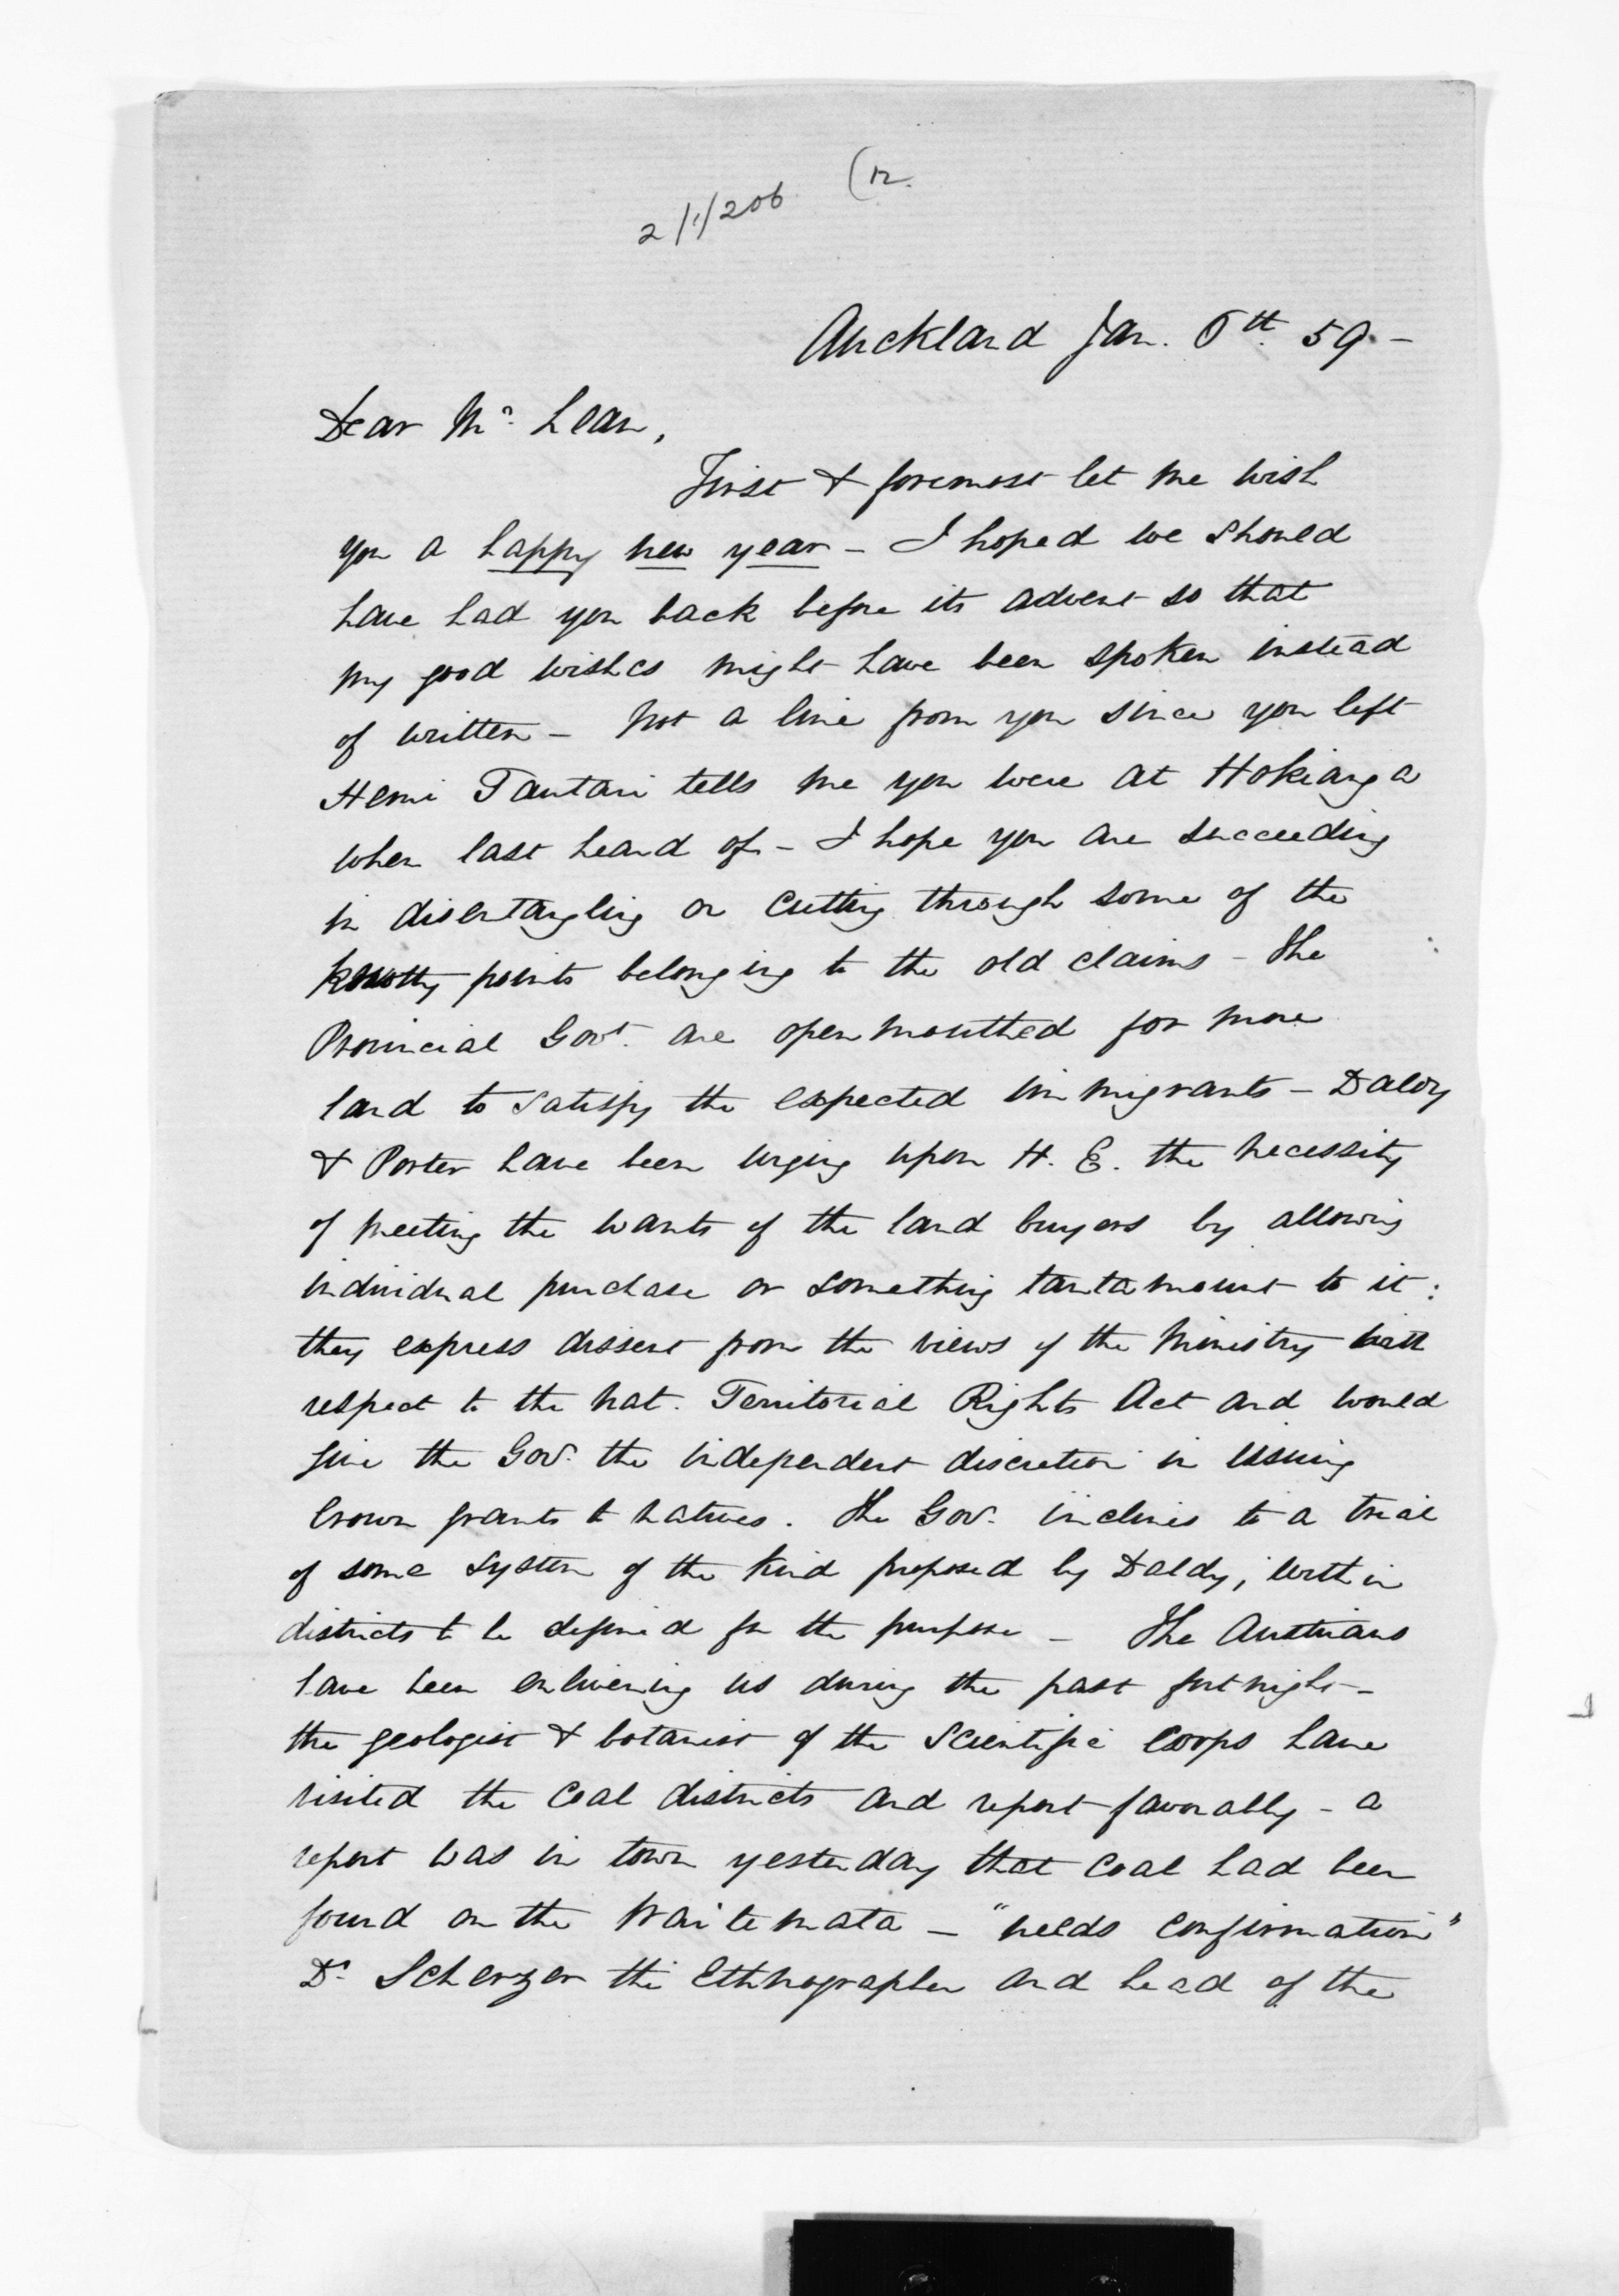 2/1/206 (12.
Auckland Jan. 6th. 59. -
Dear Mc. Lean,
First & foremost let me wish
you a happy new year - I hoped we should
have had you back before its advent so that
my good wishes might have been spoken instead
of written - Not a line from you since you left
Hemi Tautari tells me you were at Hokianga
when last heard of - I hope you are succeeding
in disentangling or cutting through some of the
knotty points belonging to the old claims - The
Provincial Govt. are openmouthed for more
land to satisfy the expected immigrants - Daldy
& Porter have been urging upon H. E. the necessity
of meeting the wants of the land buyers by allowing
individual purchase or something tantamount to it:
they express dissent from the views of the Ministry with
respect to the Nat. Territorial Rights Act and would
give the Gov. the independent discretion in issuing
Crown grants to natives. The Gov. inclines to a trial
of some system of the kind proposed by Daldy; within
districts to be defined for the purpose - The Austrians
have been enlivening us during the past fortnight -
the geologist & botanist of the Scientific corps have
visited the Coal districts and report favorably - a
report was in town yesterday that coal had been
found on the Waitemata - "needs confirmation"
Dr. Scherzer the Ethnographer and head of the